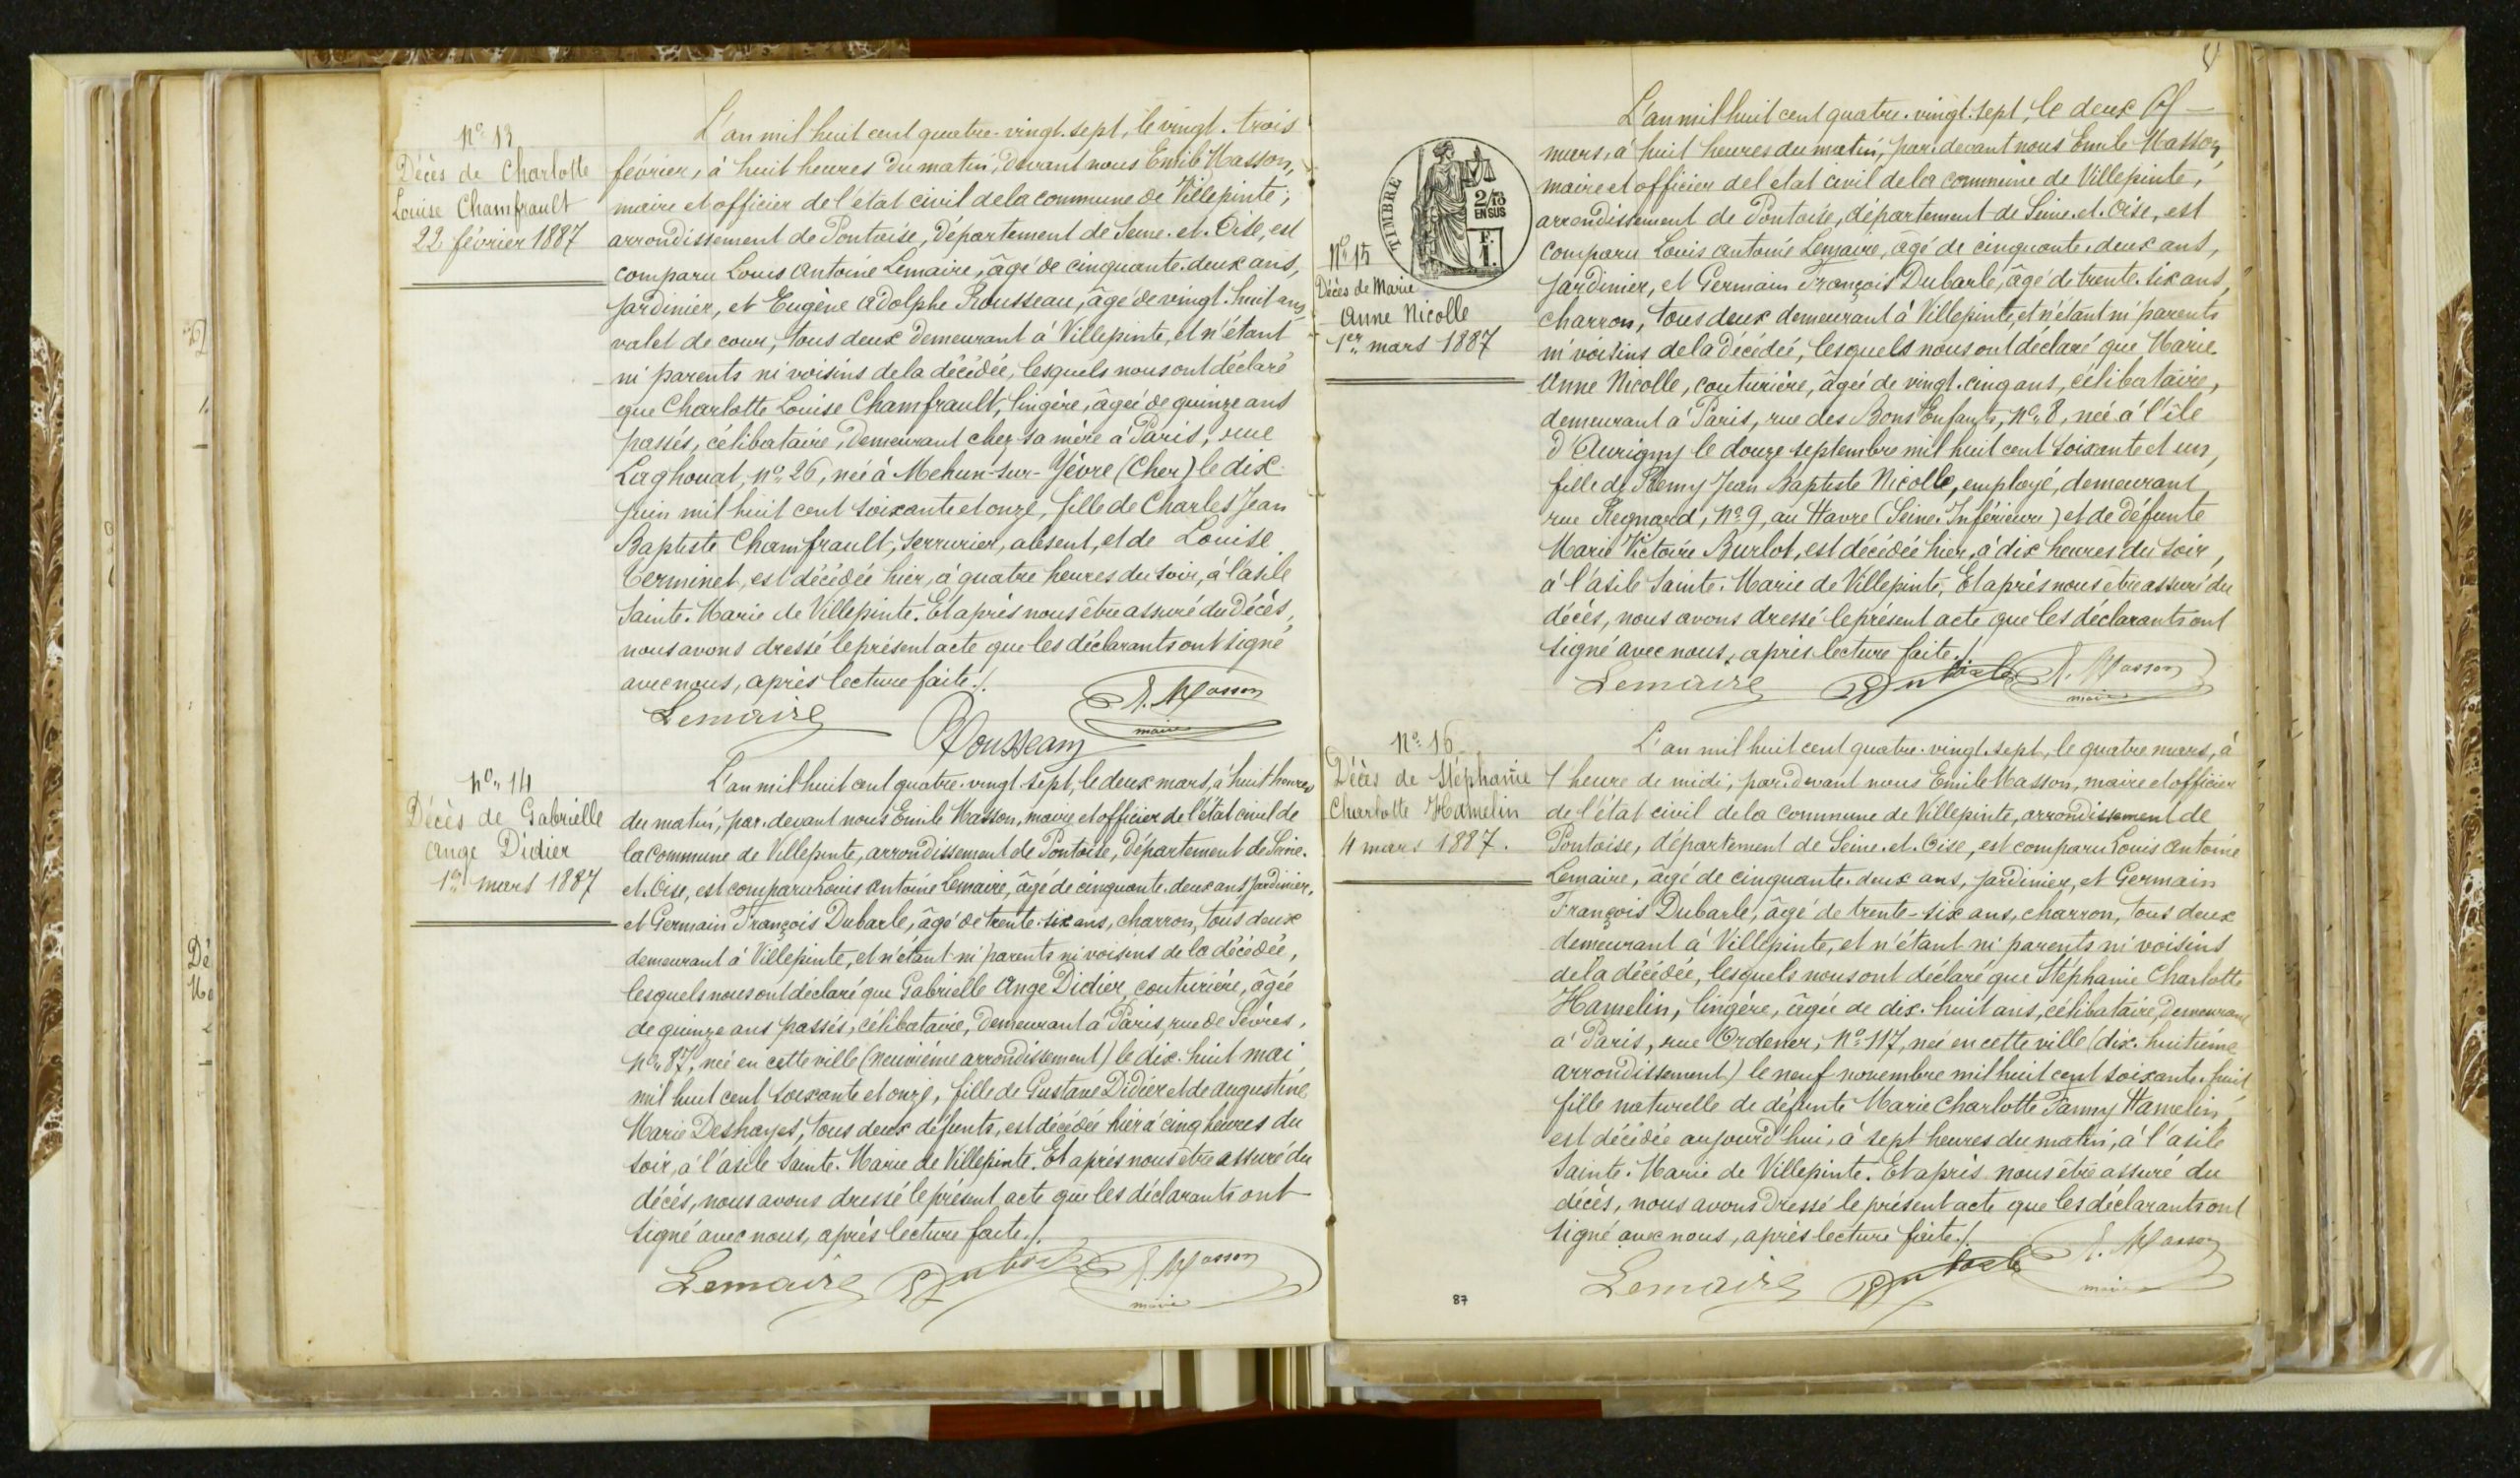 N° 13
Décès de Charlotte
Louise Chamfrault
22 février 1887
L'an mil huit cent quatre-vingt-sept, le vingt-trois
février, à huit heures du matin, devant nous Emile Masson,
maire et officier de l'état civil de la commune de Villepinte,
arrondissement de Pontoise, département de Seine-et-Oise, est
comparu Louis Antoine Lemaire, âgé de cinquante-deux ans,
jardinier, et Eugène Adolphe Rousseau, âgé de vingt-huit ans,
valet de cour, tous deux demeurant à Villepinte, et n'étant
ni parents ni voisins de la décédée, lesquels nous ont déclaré
que Charlotte Louise Chamfrault, lingère, âgée de quinze ans
passés, célibataire, demeurant chez sa mère à Paris, rue
Laghouat, n° 26, née à Mehun-sur-Yèvre (Cher) le dix
juin mil huit cent soixante et onze, fille de Charles Jean
Baptiste Chamfrault, serrurier, absent, et de Louise
Terminet, est décédée hier, à quatre heures du soir, à l'asile
Sainte-Marie de Villepinte. Et après nous être assuré du décès,
nous avons dressé le présent acte que les déclarants ont signé
avec nous, après lecture faite./.
Lemaire
Rousseau
E. Masson
maire
N° 14
Décès de Gabrielle
Ange Didier
1er mars 1887
L'an mil huit cent quatre-vingt-sept, le deux mars, à huit heures
du matin, par-devant nous Emile Masson, maire et officier de l'état civil de
la commune de Villepinte, arrondissement de Pontoise, département de Seine-
et-Oise, est comparu Louis Antoine Lemaire, âgé de cinquante-deux ans, jardinier,
et Germain François Dubarle, âgé de trente-six ans, charron, tous deux
demeurant à Villepinte, et n'étant ni parents ni voisins de la décédée,
lesquels nous ont déclaré que Gabrielle Ange Didier, couturière, âgée
de quinze ans passés, célibataire, demeurant à Paris, rue de Sèvres,
n° 87, née en cette ville (neuvième arrondissement) le dix-huit mai
mil huit cent soixante et onze, fille de Gustave Didier et de Augustine
Marie Deshayes, tous deux défunts, est décédée hier à cinq heures du
soir, à l'asile Sainte-Marie de Villepinte. Et après nous être assuré du
décès, nous avons dressé le présent acte que les déclarants ont
signé avec nous, après lecture faite./.
Lemaire
Dubarle
E. Masson
maire
TIMBRE
2/10
EN SUS
F.
1.
N° 15
Décès de Marie
Anne Nicolle
1er mars 1887
L'an mil huit cent quatre-vingt-sept, le deux
mars, à huit heures du matin, par-devant nous Emile Masson,
maire et officier de l'etat civil de la commune de Villepinte,
arrondissement de Pontoise, département de Seine-et-Oise, est
comparu Louis Antoine Lemaire, âgé de cinquante-deux ans,
jardinier, et Germain François Dubarle, âgé de trente-six ans,
charron, tous deux demeurant à Villepinte, et n'étant ni parents
ni voisins de la décédée, lesquels nous ont déclaré que Marie
Anne Nicolle, couturière, âgée de vingt-cinq ans, célibataire,
demeurant à Paris, rue des Bons Enfants, n° 8, née à l'île
d'Aurigny le douze septembre mil huit cent soixante et un,
fille de Remy Jean Baptiste Nicolle, employé, demeurant
rue Regnard, n° 9, au Havre (Seine-Inférieure) et de défunte
Marie Victoire Burlot, est décédée hier, à dix heures du soir,
à l'asile Sainte-Marie de Villepinte. Et après nous être assuré du
décès, nous avons dressé le présent acte que les déclarants ont
signé avec nous, après lecture faite./.
Lemaire
Dubarle
E. Masson
maire
N° 16
Décès de Stéphanie
Charlotte Hamelin
4 mars 1887.
L'an mil huit cent quatre-vingt-sept, le quatre mars, à
1 heure de midi, par-devant nous Emile Masson, maire et officier
de l'état civil de la commune de Villepinte, arrondissement de
Pontoise, département de Seine-et-Oise, est comparu Louis Antoine
Lemaire, âgé de cinquante-deux ans, jardinier, et Germain
François Dubarle, âgé de trente-six ans, charron, tous deux
demeurant à Villepinte, et n'étant ni parents ni voisins
de la décédée, lesquels nous ont déclaré que Stéphanie Charlotte
Hamelin, lingère, âgée de dix-huit ans, célibataire, demeurant
à Paris, rue Ordener, n° 117, née en cette ville (dix-huitième
arrondissement) le neuf novembre mil huit cent soixante-huit,
fille naturelle de défunte Marie Charlotte Fanny Hamelin,
est décédée aujourd'hui, à sept heures du matin, à l'asile
Sainte-Marie de Villepinte. Et après nous être assuré du
décès, nous avons dressé le présent acte que les déclarants ont
signé avec nous, après lecture faite./.
Lemaire
Dubarle
E. Masson
maire
87